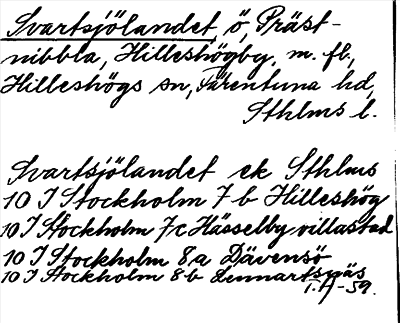 Svartsjölandet ö, Präst-
nibbla, Hilleshögby, m. fl.,
Hilleshögs sn, Färentuna hd,
Sthlms l.
Svartsjölandet ek Sthlms
10 I Stockholm 7 b Hilleshög
10 I Stockholm 7c Hässelby villastad
10 I Stockholm 8a Dävensö
10 I Stockholm 8b Lennartsnäs
T. H-59.